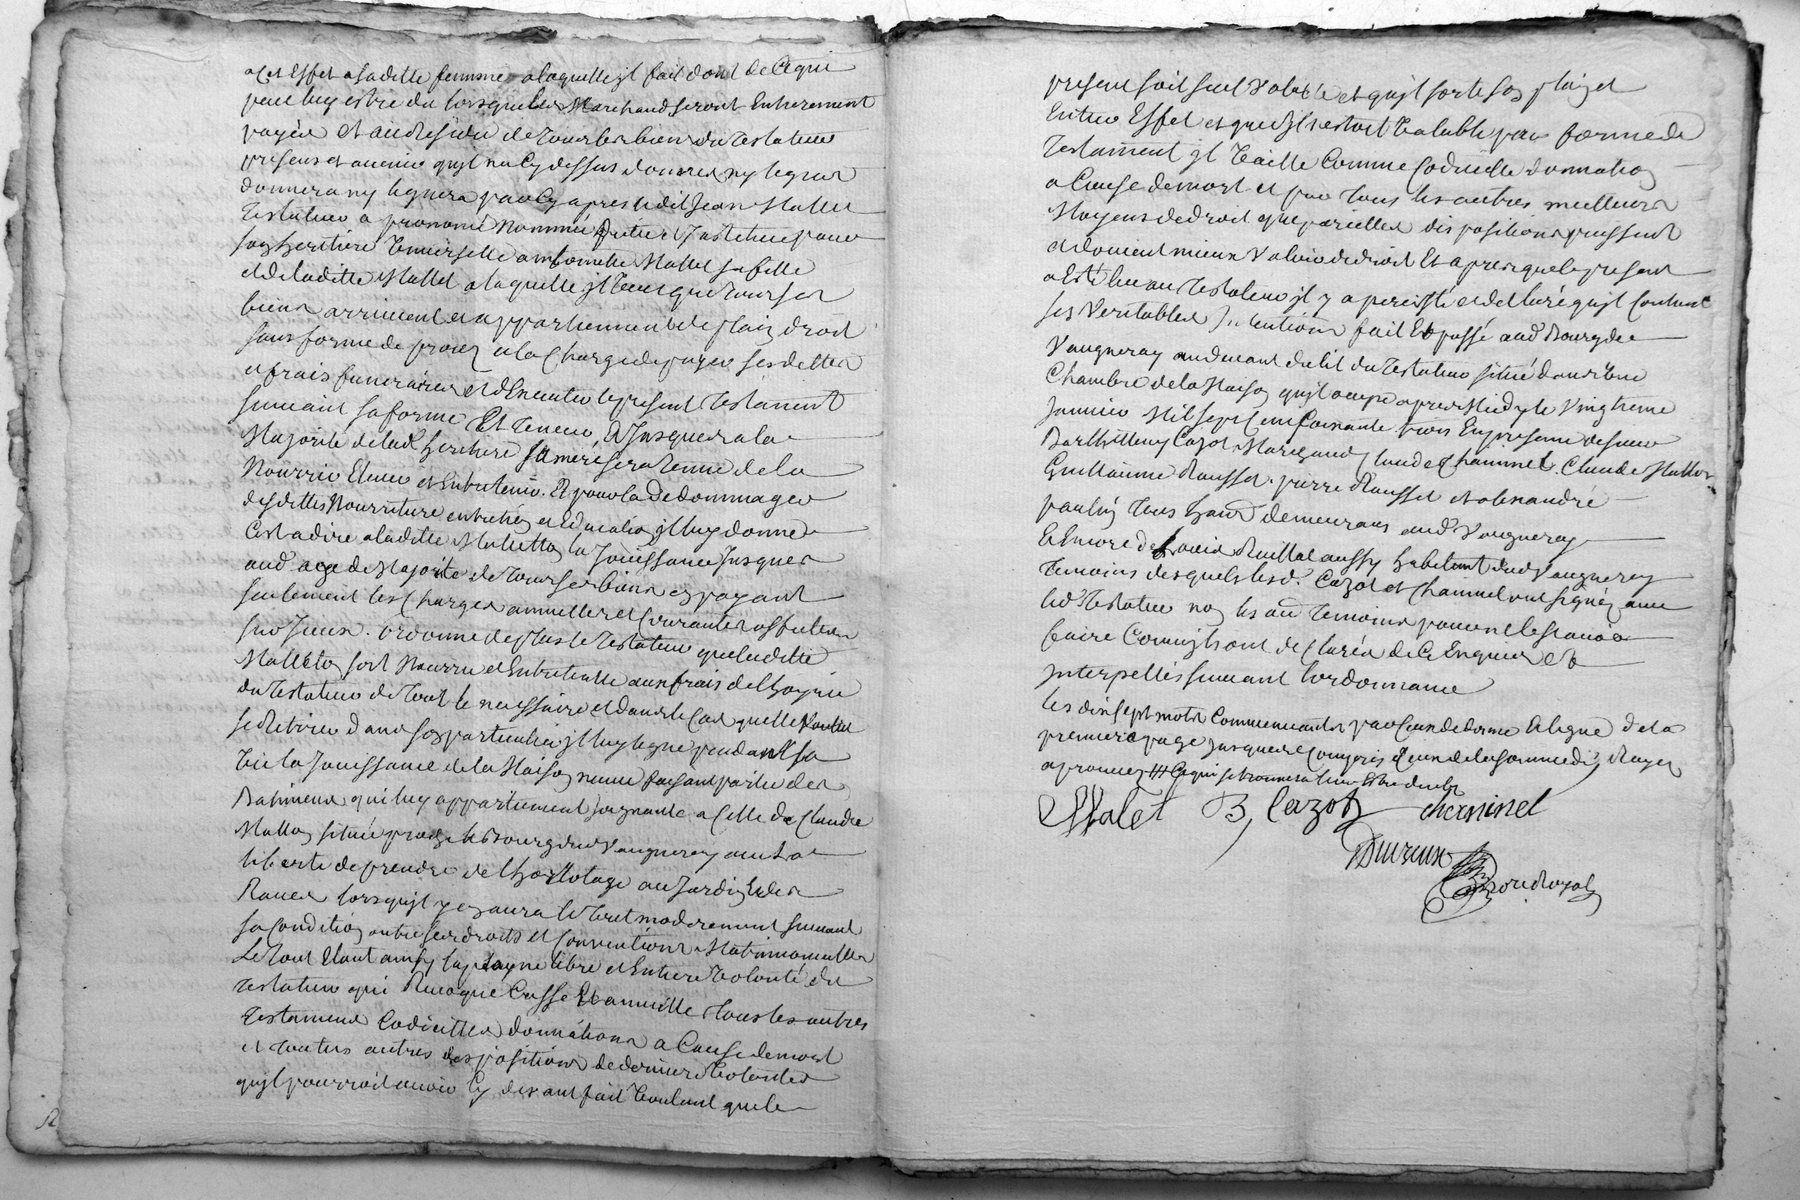 a cet Effet a laditte femme a laquelle jl fait dont de Ce qui
peut luy estre du lorsque les Marchands seront Entierement
payéz et au Residu de tous les biens du testateur
presens et avenir quil n'a Cy dessus donnés ny legués
donnera ny leguera par Cy apres ledit Jean Mallet
testateur a prenomé Nommée et Jnstitue pour
son heritiere Vniverselle anthoinette Mallet sa fille
et de laditte Mallet a laquelle jl Veut que tous ses
biens arrivent et appartiennent de plain droit
sans forme de procez a la Charge de payer ses dettes
et frais funeraires et d'Executer le present testament
suivant sa forme Et teneur, Et Jusques a la
Majorité de lad. heritiere sa mere sera tenue de la
Nourrir Elever et Entretenir. Et pour la dedommager
desdittes Nourriture entretien et Education jl luy donne
C'est a dire a laditte Malletton la Jouissance Jusques
aud. age de Majorité de tous ses biens en payant
seulement les Charges annuelles et Courantes affectées
sur Jceux. ordonne de plus le testateur que laditte
Malleton soit Nourrie et Entretenue aux frais de l'hoyrie
du testateur de tout le necessaire et dans le Cas quelle Voulut
se Retirer dans son particulier jl luy legue pendant sa
Vie la Jouissance de la Maison neuve faisant partie des
Batiments qui luy appartiennent joignante a Celle de Claude
Mallon située proche le Bourg dud. Vaugneray avec la
liberté de prendre de l'hortolage au Jardin et des
Raves lorsquil y en aura le tout moderement suivant
sa Condition outre ses droits et Conventions Matrimonialles
Le tout Etant ainsy la plaine libre et Entiere Volonté du
testateur qui Revoque Casse Et annulle tous les autres
testaments Codicilles donnations a Cause de mort
et toutes autres dispositions de derniere Volontés
quil pourroit avoir Cy devant fait Voulant que le
present soit seul Valable et quil sorte son plain et
Entier Effet et que sil n'estoit Valable par forme de
testament jl Vaille Comme Codicille donnation
a Cause de mort et par tous les autres meilleurs
Moyens de droit que pareilles dispositions puissent
et doivent mieux Valoir de droit Et apres que le present
a été leu au testateur jl y a persisté et declaré quil Contient
ses Veritables Jntentions fait Et passé aud. Bourg de
Vaugneray au devant du lit du testateur situé dans Une
Chambre de la Maison quil occupe apres Midy le Vingtieme
Janvier Mil sept Cent soixante trois En presence de sieur
Barthellemy Cazot Marchand Claude Chaminel. Claude Mallon
Guillaume Rousset. pierre Rousset et alexandre
paulin tous hanb demeurans aud. Vaugneray
Et Encore de aussy habitant dud. Vaugneray
temoins desquels lesd. Cazot et Chaminel ont signéz avec
led. testateur non les autres temoins pour ne le scavoir
faire Comm'ils ont declaréz de Ce Enquis et
Jnterpellés suivant l'ordonnance
les dix sept mots Commencants par Ceux de derme ligne de la
premiere page jusques Compris Ceux de la somme de Rayez
aprouvez
Mallet B, Cazot chaminel